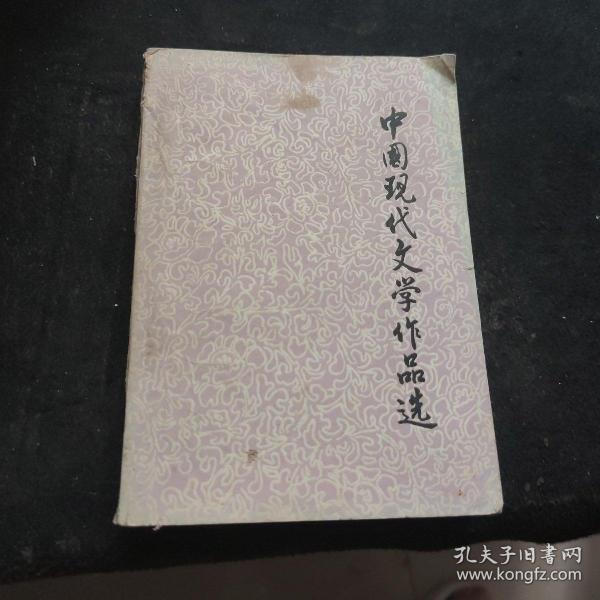 中国现代文学作品选
孔夫子旧書网
www.kongfz.com